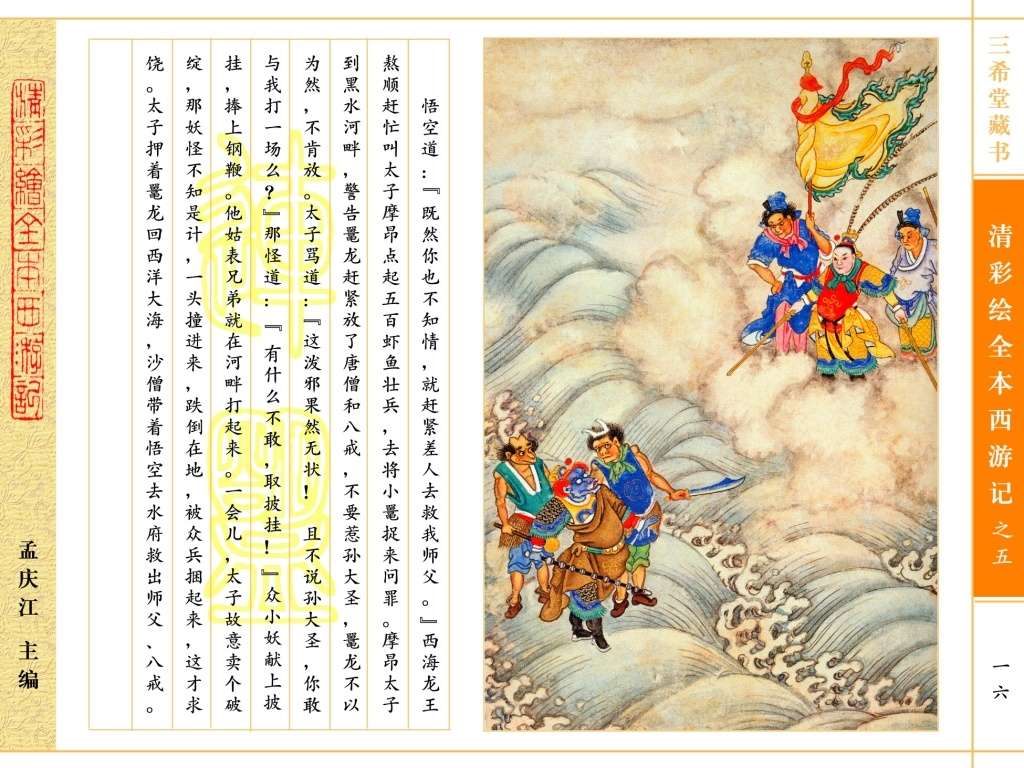 三希堂藏书
清彩绘全本西游记之五
一六
悟空道：『既然你也不知情，就赶紧差人去救我师父。』西海龙王
熬顺赶忙叫太子摩昂点起五百虾鱼壮兵，去将小鼍捉来问罪。摩昂太子
到黑水河畔，警告鼍龙赶紧放了唐僧和八戒，不要惹孙大圣，鼍龙不以
为然，不肯放。太子骂道：『这泼邪果然无状！ 且不说孙大圣，你敢
与我打一场么？』那怪道：『有什么不敢，取披挂！』众小妖献上披
挂，捧上钢鞭。他姑表兄弟就在河畔打起来。一会儿，太子故意卖个破
绽，那妖怪不知是计，一头撞进来，跌倒在地，被众兵捆起来，这才求
饶。太子押着鼍龙回西洋大海，沙僧带着悟空去水府救出师父、八戒。
清彩繪全本西游記
孟庆江 主编